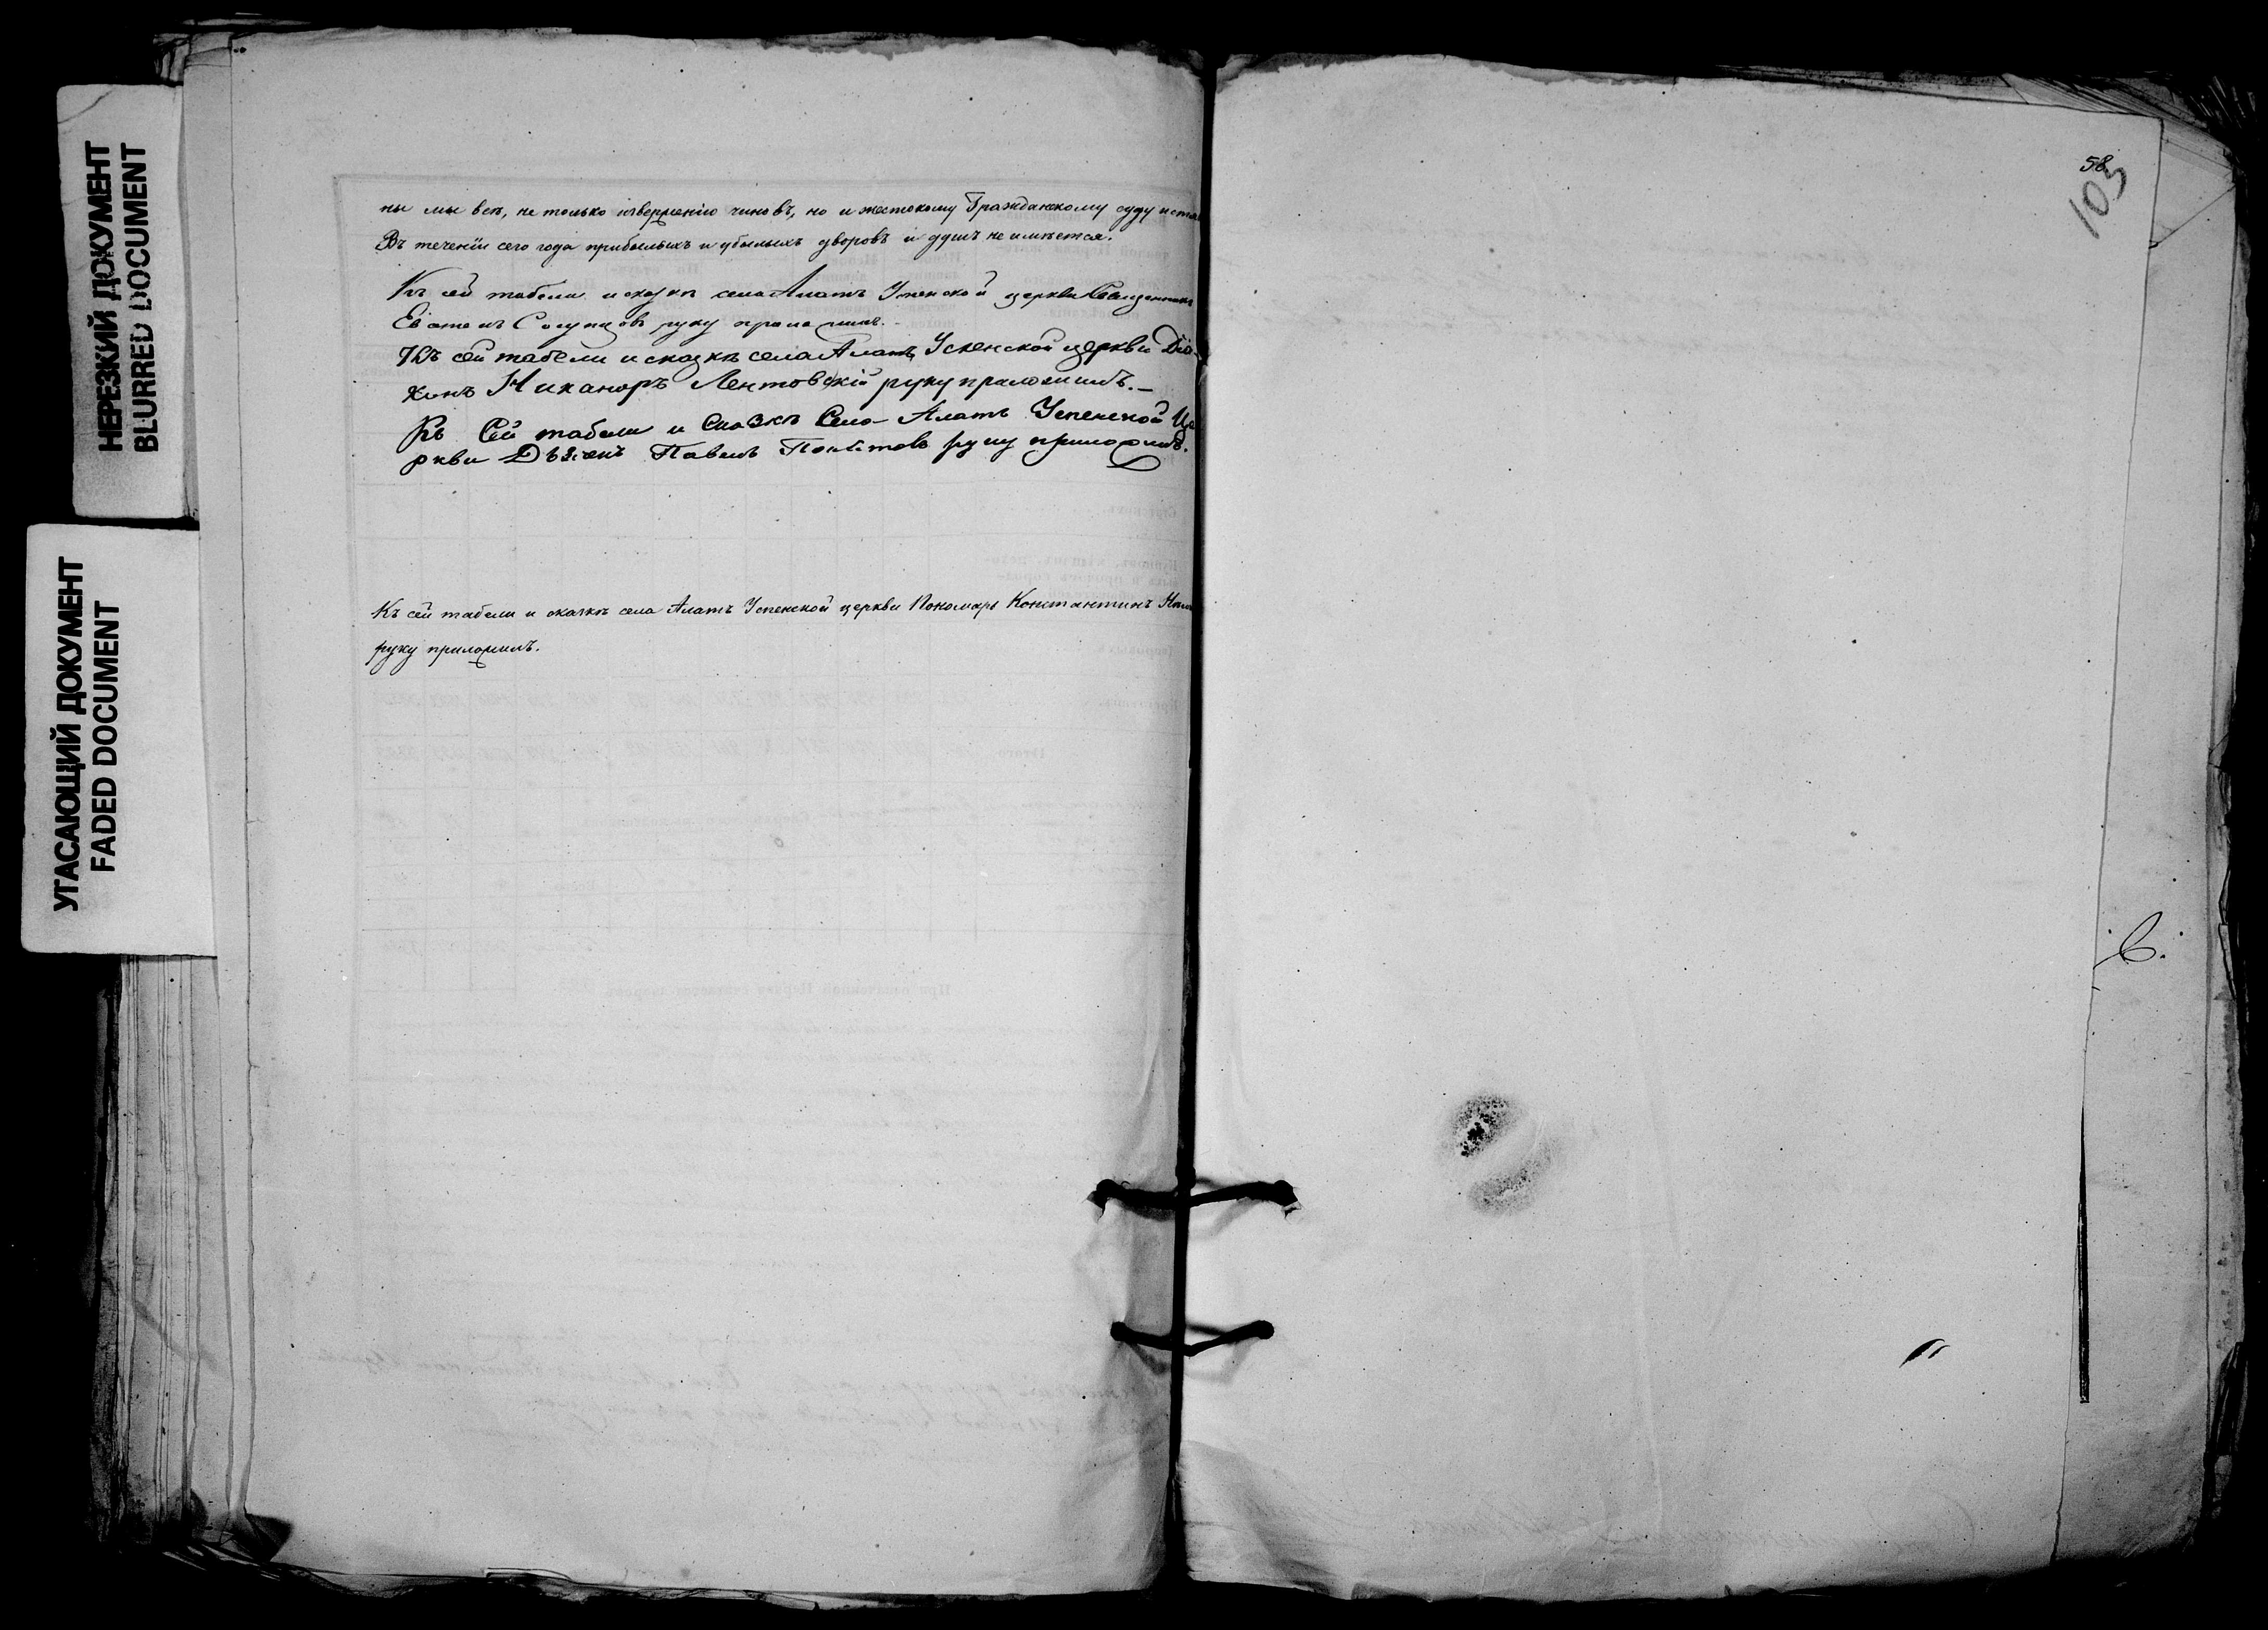 НЕРЕЗКИЙ ДОКУМЕНТ
BLURRED DOCUMENT
УГАСАЮЩИЙ ДОКУМЕНТ
FADED DOCUMENT
ны мы всѣ, не только изверженію чиновъ, но и жестокому Гражданскому суду
Въ теченіи сего года прибылыхъ и убылыхъ дворовъ и душъ не имѣется.
Къ сей табели и сказкѣ села Алатъ Успенской церкви Священникъ
руку приложилъ.
Къ сей табели и сказкѣ села Алатъ Успенской церкви Діа-
конъ Никаноръ Лентовскій руку приложилъ.—
Къ Сей табели и Сказкѣ Села Алатъ Успенской Це
ркви Павелъ руку приложилъ.
Къ сей табели и сказкѣ села Алатъ Успенской церкви Пономарь Константинъ
руку приложилъ.
58
103